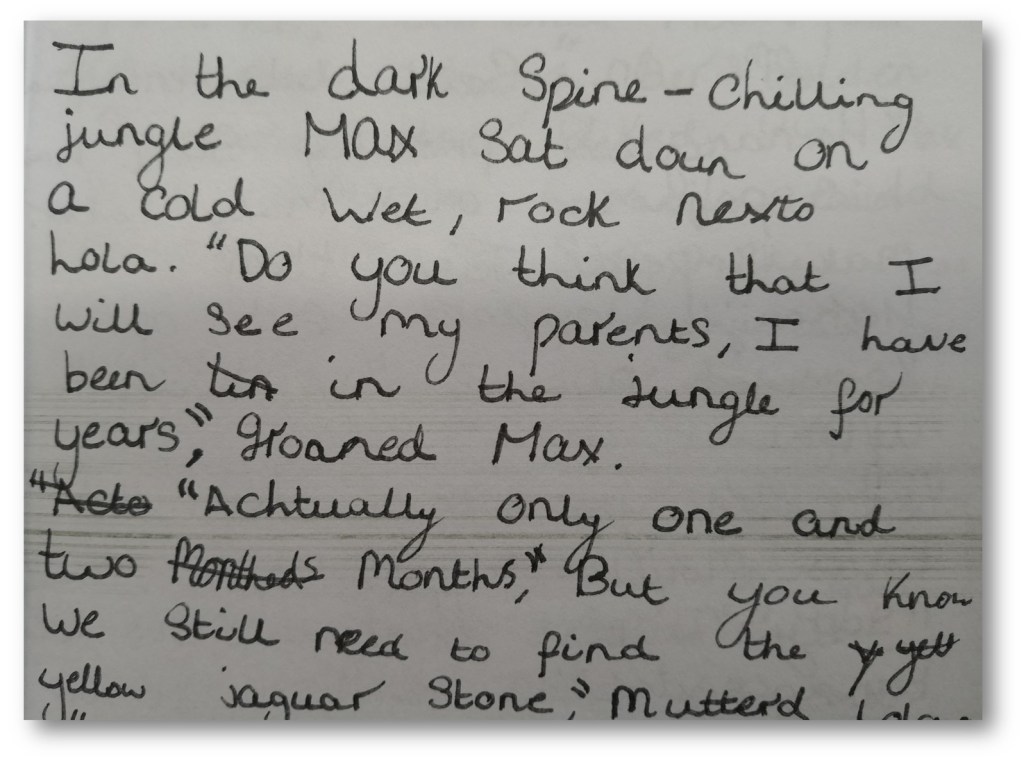 In the dark Spine-Chilling
jungle MAX Sat down on
a cold wet, rock nexto
Lola. "Do you think that I
will see my parents, I have
been in the jungle for
years," groaned Max.
"Acto "Achtually only one and
two Months," But you know
we Still need to find the
yellow jaguar Stone," Mutterd Lola